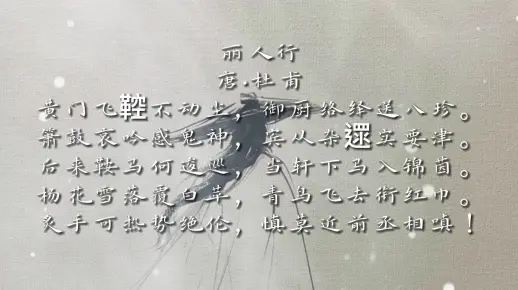 丽人行
唐·杜甫
黄门飞鞚不动尘，御厨络绎送八珍。
箫鼓哀吟感鬼神，宾从杂遝实要津。
后来鞍马何逡巡，当轩下马入锦茵。
杨花雪落覆白苹，青鸟飞去衔红巾。
炙手可热势绝伦，慎莫近前丞相嗔！